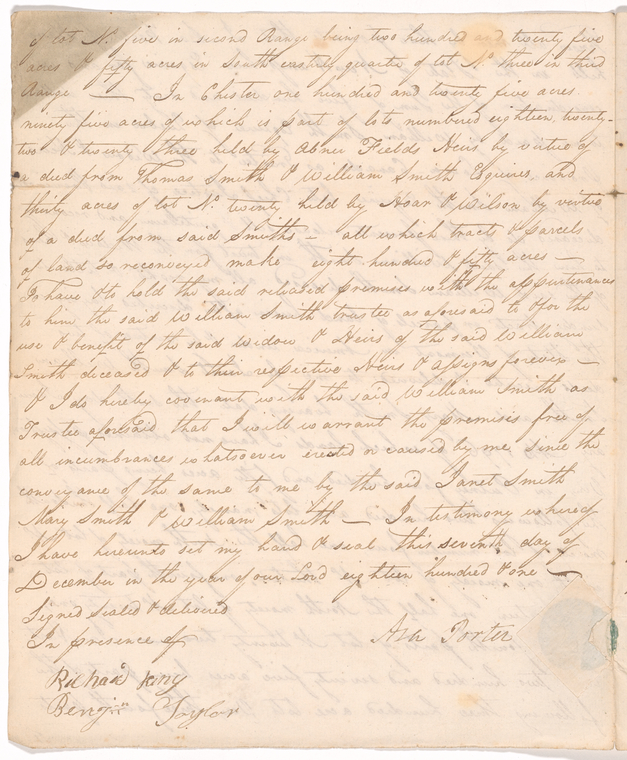 of lot No. five in second Range being two hundred and twenty five
acres & fifty acres in South easterly quarter of lot No three in third
Range — In Chester one hundred and twenty five acres
ninety five acres of which is part of lots numbered eighteen, twenty-
two & twenty three held by Abner Fields Heirs by virtue of
a deed from Thomas Smith & William Smith Esquires and
thirty acres of lot No twenty held by Hoar & Wilson by virtue
of a deed from said Smiths — all which tracts & parcels
of land so reconveyed make eight hundred & fifty acres —
To have & to hold the said released premises with the appurtenances
to him the said William Smith trustee as aforesaid to & for the
use & benefit of the said Widow & Heirs of the said William
Smith deceased & to their respective Heirs & assigns forever —
& I do hereby covenant with the said William Smith as
Trustee aforesaid that I will warrant the premises free of
all incumbrances whatsoever erected or caused by me since the
conveyance of the same to me by the said Janet Smith
Mary Smith & William Smith — In testimony whereof
I have hereunto set my hand & seal this seventh day of
December in the year of our Lord eighteen hundred & one —
Signed sealed & delivered
In presence of
Asa Porter
Richard King
Benjn Taylor